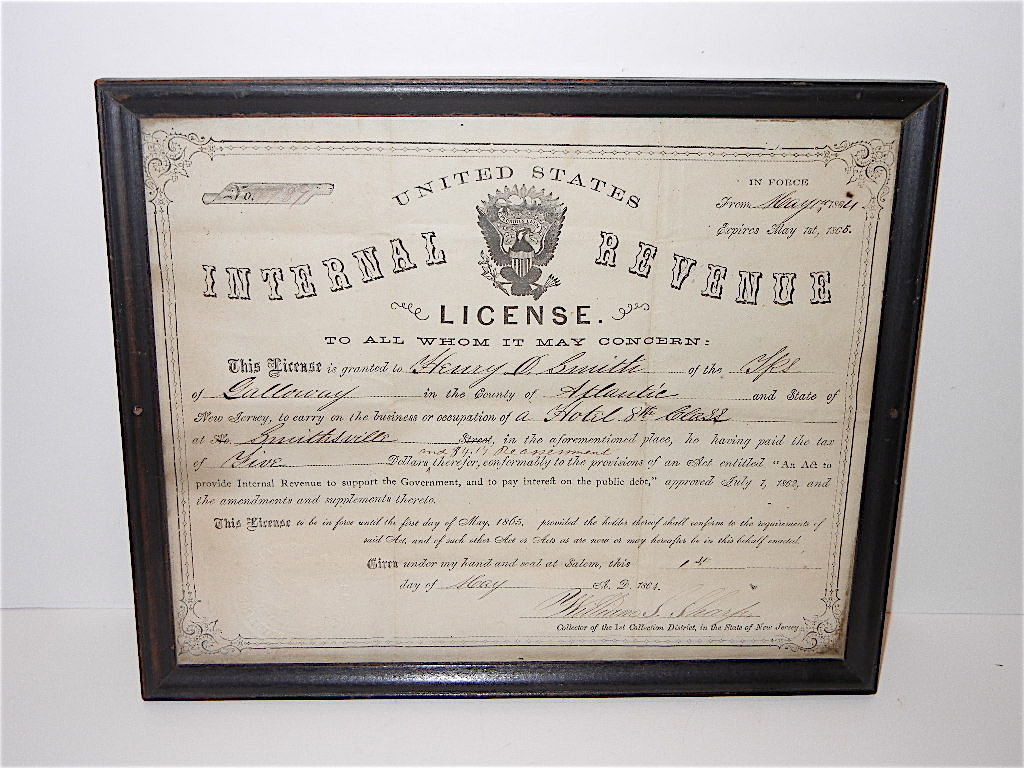 No.
UNITED STATES
IN FORCE
From May 1, 1864.
Expires May 1st, 1865.
INTERNAL REVENUE
LICENSE.
TO ALL WHOM IT MAY CONCERN:
This License is granted to Henry O Smith of the Tps
of Galloway in the County of Atlantic and State of
New Jersey, to carry on the business or occupation of a Hotel 8th Class
at No. Smithsville Street, in the aforementioned place, he having paid the tax
and $4.17 Reassessment
of Five Dollars therefor, conformably to the provisions of an Act entitled "An Act to
provide Internal Revenue to support the Government, and to pay interest on the public debt," approved July 1, 1862, and
the amendments and supplements thereto.
This License to be in force until the first day of May, 1865, provided the holder thereof shall conform to the requirements of
said Act, and of such other Act or Acts as are now or may hereafter be in this behalf enacted.
Given under my hand and seal at Salem, this 1st
day of May A. D. 1864.
William S. Sharp
Collector of the 1st Collection District, in the State of New Jersey.